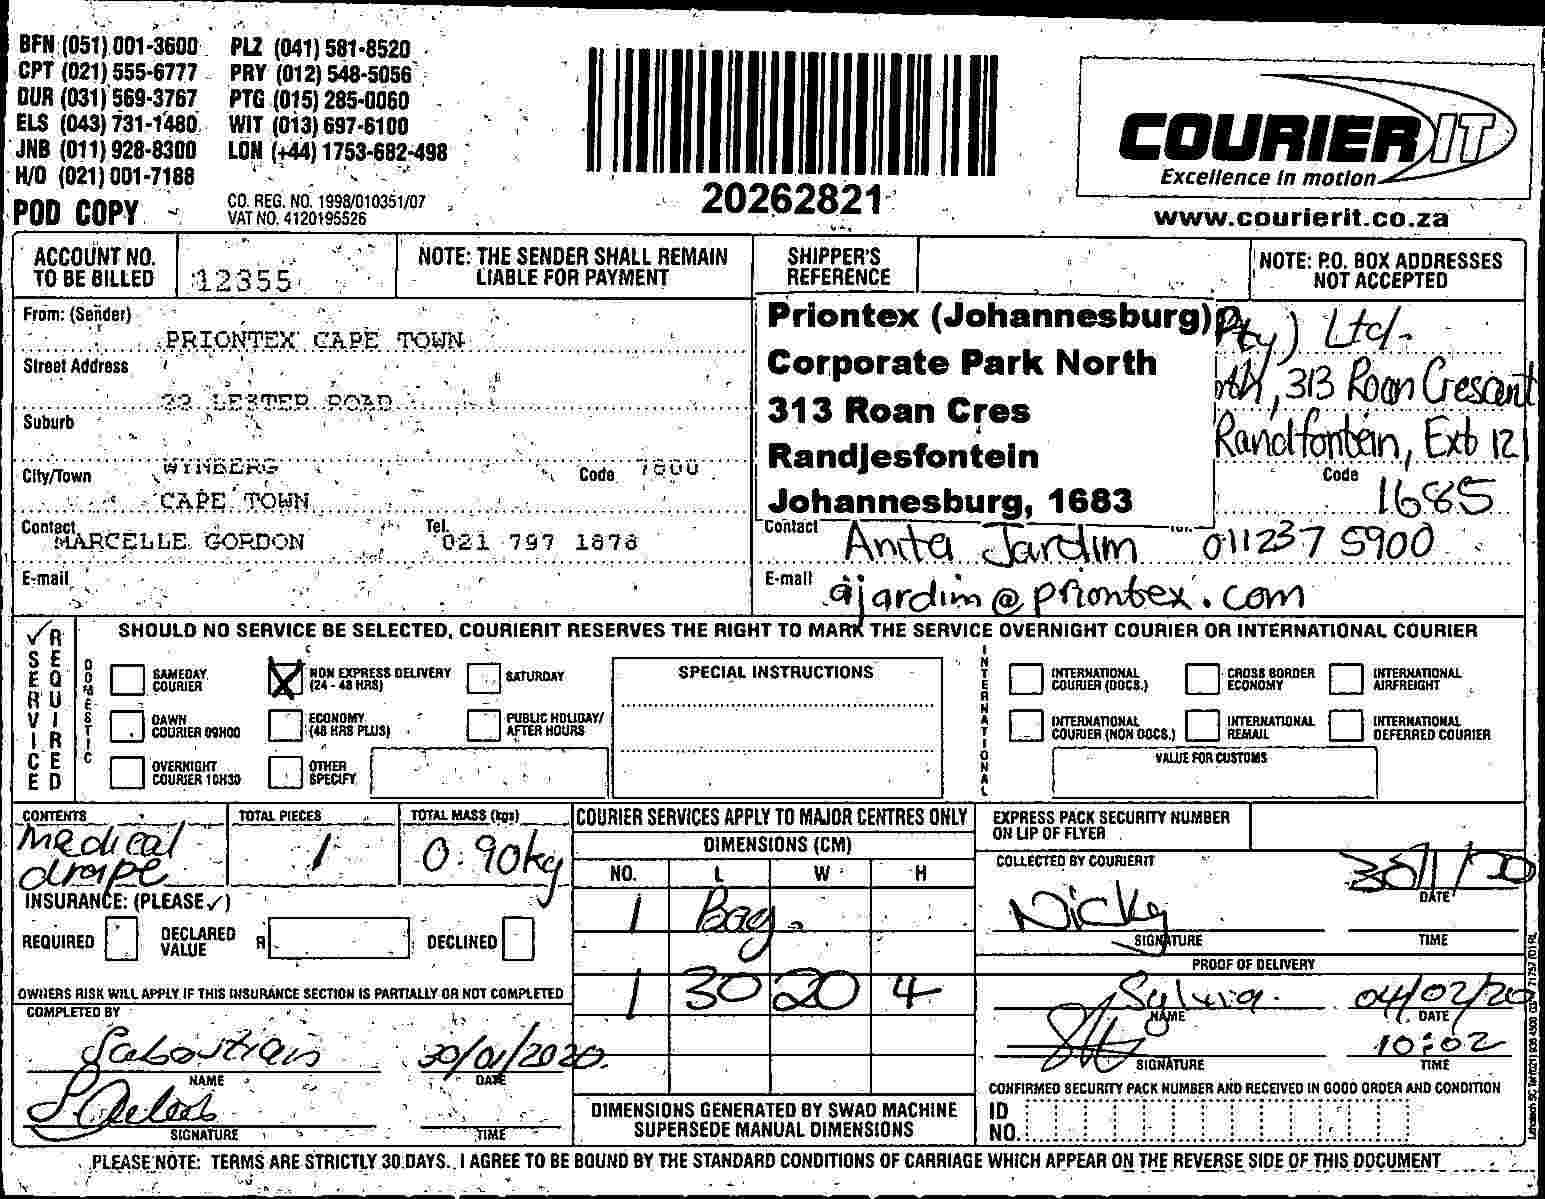 BFN (051) 001-3600 PLZ (041) 581-8520
CPT (021) 555-6777 PRY (012) 548-5056
DUR (031) 569-3767 PTG (015) 285-0060
ELS (043) 731-1480 WIT (013) 697-6100
JNB (011) 928-8300 LON (+44) 1753-682-498
H/O (021) 001-7188
POD COPY
CO. REG. NO. 1998/010351/07
VAT NO. 4120195526
20262821
COURIER IT
Excellence in motion
www.courierit.co.za
ACCOUNT NO. TO BE BILLED
12355
NOTE: THE SENDER SHALL REMAIN LIABLE FOR PAYMENT
SHIPPER'S REFERENCE
NOTE: P.O. BOX ADDRESSES NOT ACCEPTED
From: (Sender)
PRIONTEX CAPE TOWN
Street Address
22 LESTER ROAD
Suburb
WYNBERG
City/Town
Code 7800
CAPE TOWN
Contact MARCELLE GORDON
Tel. 021 797 1878
E-mail
Priontex (Johannesburg)
Corporate Park North
313 Roan Cres
Randjesfontein
Johannesburg, 1683
Pty) Ltd.
rth, 313 Roan Crescent
Randfontein, Ext 12
Code 1685
Contact Anita Jardim 011237 5900
E-mail ajardim@priontex.com
✓ SERVICE REQUIRED
SHOULD NO SERVICE BE SELECTED, COURIERIT RESERVES THE RIGHT TO MARK THE SERVICE OVERNIGHT COURIER OR INTERNATIONAL COURIER
DOMESTIC
SAMEDAY COURIER
X NON EXPRESS DELIVERY (24 - 48 HRS)
SATURDAY
DAWN COURIER 09H00
ECONOMY (48 HRS PLUS)
PUBLIC HOLIDAY/ AFTER HOURS
OVERNIGHT COURIER 10H30
OTHER SPECIFY
SPECIAL INSTRUCTIONS
INTERNATIONAL
INTERNATIONAL COURIER (DOCS.)
CROSS BORDER ECONOMY
INTERNATIONAL AIRFREIGHT
INTERNATIONAL COURIER (NON DOCS.)
INTERNATIONAL REMAIL
INTERNATIONAL DEFERRED COURIER
VALUE FOR CUSTOMS
CONTENTS
Medical drape
TOTAL PIECES
1
TOTAL MASS (kgs)
0.90kg
INSURANCE: (PLEASE ✓)
REQUIRED
DECLARED VALUE R
DECLINED
OWNERS RISK WILL APPLY IF THIS INSURANCE SECTION IS PARTIALLY OR NOT COMPLETED
COMPLETED BY
30/01/2020
NAME DATE
SIGNATURE TIME
COURIER SERVICES APPLY TO MAJOR CENTRES ONLY
DIMENSIONS (CM)
NO. L W H
1 Bag.
1 30 20 4
DIMENSIONS GENERATED BY SWAD MACHINE SUPERSEDE MANUAL DIMENSIONS
EXPRESS PACK SECURITY NUMBER ON LIP OF FLYER
COLLECTED BY COURIERIT
Nicky
30/1/20
DATE
SIGNATURE TIME
PROOF OF DELIVERY
Sylvia. 04/02/20
NAME DATE
10:02
SIGNATURE TIME
CONFIRMED SECURITY PACK NUMBER AND RECEIVED IN GOOD ORDER AND CONDITION
ID NO.
PLEASE NOTE: TERMS ARE STRICTLY 30 DAYS. I AGREE TO BE BOUND BY THE STANDARD CONDITIONS OF CARRIAGE WHICH APPEAR ON THE REVERSE SIDE OF THIS DOCUMENT